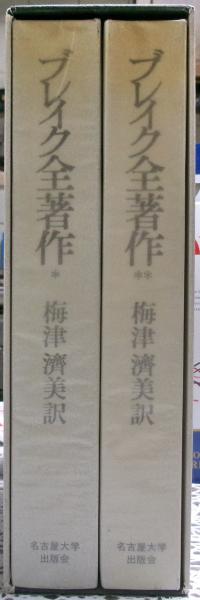 ブレイク全著作
*
梅津 濟美訳
名古屋大学
出版会
ブレイク全著作
**
梅津 濟美訳
名古屋大学
出版会